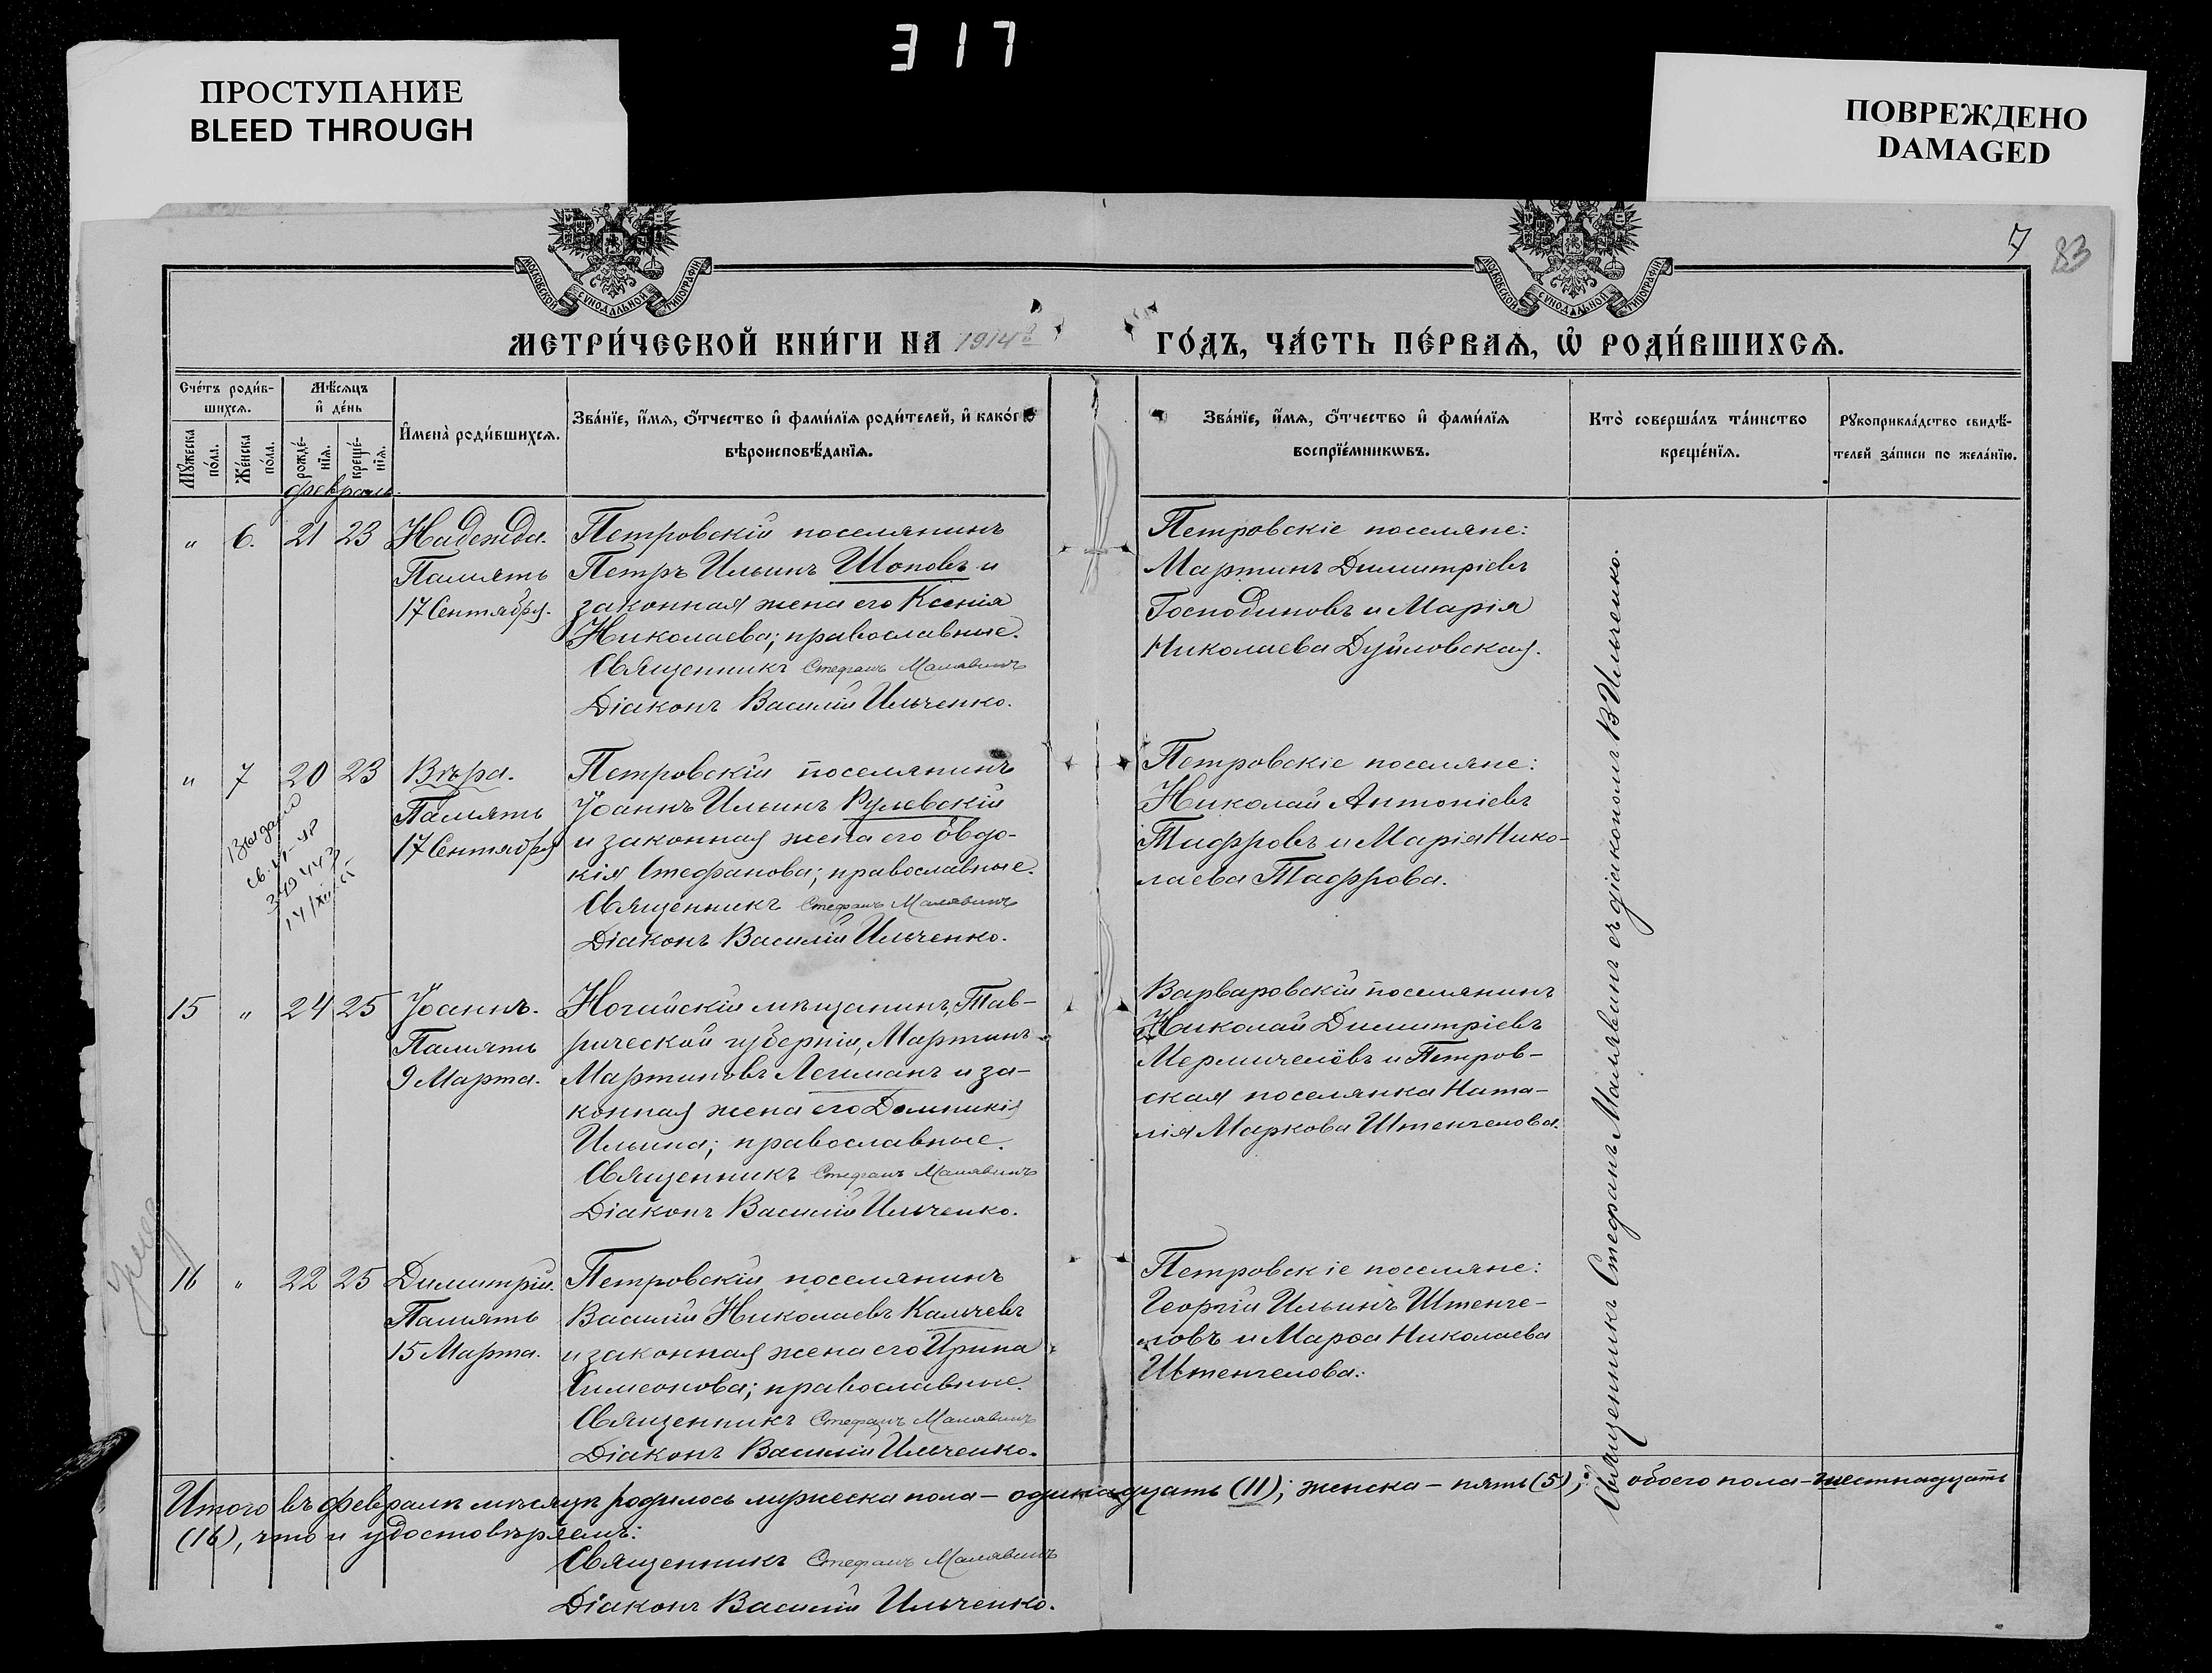 317
ПРОСТУПАНИЕ
BLEED THROUGH
ПОВРЕЖДЕНО
DAMAGED
7 83
МОСКОВСКОЙ СѴНОДАЛЬНОЙ ТИПОГРАФІИ
МОСКОВСКОЙ СѴНОДАЛЬНОЙ ТИПОГРАФІИ
МЕТРИ́ЧЕСКОЙ КНИ́ГИ НА 1914й
ГО́ДЪ, ЧА́СТЬ ПЕ́РВАѦ, Ѡ РОДИ́ВШИХСѦ.
Сче́тъ роди́в-
шихсѧ.
Мꙋжеска по́ла.
Же́нска по́ла.
Мѣ́сѧцъ
и де́нь
рожде́-
нїѧ.
креще́-
нїѧ.
Имена̀ роди́вшихсѧ.
Зва́нїе, и́мѧ, о́тчество и фами́лїѧ роди́телей, и како́гѡ
вѣроисповѣ́данїѧ.
Зва́нїе, и́мѧ, о́тчество и фами́лїѧ
воспрїе́мникѡвъ.
Кто̀ соверша́лъ та́инство
креще́нїѧ.
Рꙋкоприкла́дство свидѣ́-
телей за́писи по жела́нїю.
февраль.
" 6. 21 23 Надежда.
Память
17 Сентября.
Петровскій поселянинъ
Петръ Ильинъ Шоповъ и
законная жена его Ксенія
Николаева; православные.
Священникъ Стефанъ Малявинъ
Діаконъ Василій Ильченко.
Петровскіе поселяне:
Мартинъ Димитріевъ
Господиновъ и Марія
Николаева Дуйловская.
" 7 20 23 Вѣра.
Память
17 Сентября
Петровскій поселянинъ
Іоаннъ Ильинъ Рулевскій
и законная жена его Евдо-
кія Стефанова; православные.
Священникъ Стефанъ Малявинъ
Діаконъ Василій Ильченко.
Петровскіе поселяне:
Николай Антоніевъ
Тафровъ и Марія Нико-
лаева Тафрова.
15 " 24 25 Іоаннъ.
Память
9 Марта.
Ногайскій мѣщанинъ, Тав-
рической губерніи, Мартинъ
Мартиновъ Легиманъ и за-
конная жена его Домникія
Ильина; православные.
Священникъ Стефанъ Малявинъ
Діаконъ Василій Ильченко.
Варваровскій поселянинъ
Николай Димитріевъ
Мермичелёвъ и Петров-
ская поселянка Ната-
лія Маркова Штенгелова.
16 " 22 25 Димитрій.
Память
15 Марта.
Петровскій поселянинъ
Василій Николаевъ Калчевъ
и законная жена его Ирина
Симеонова; православные.
Священникъ Стефанъ Малявинъ
Діаконъ Василій Ильченко.
Петровскіе поселяне:
Георгій Ильинъ Штенге-
ловъ и Марѳа Николаева
Штенгелова.
Священникъ Стефанъ Малявинъ съ діакономъ В Ильченко.
Итого въ февралѣ мѣсяцѣ родилось мужеска пола - одинадцать (11); женска - пять (5); обоего пола - шестнадцать
(16), что и удостовѣряемъ:
Священникъ Стефанъ Малявинъ
Діаконъ Василій Ильченко.